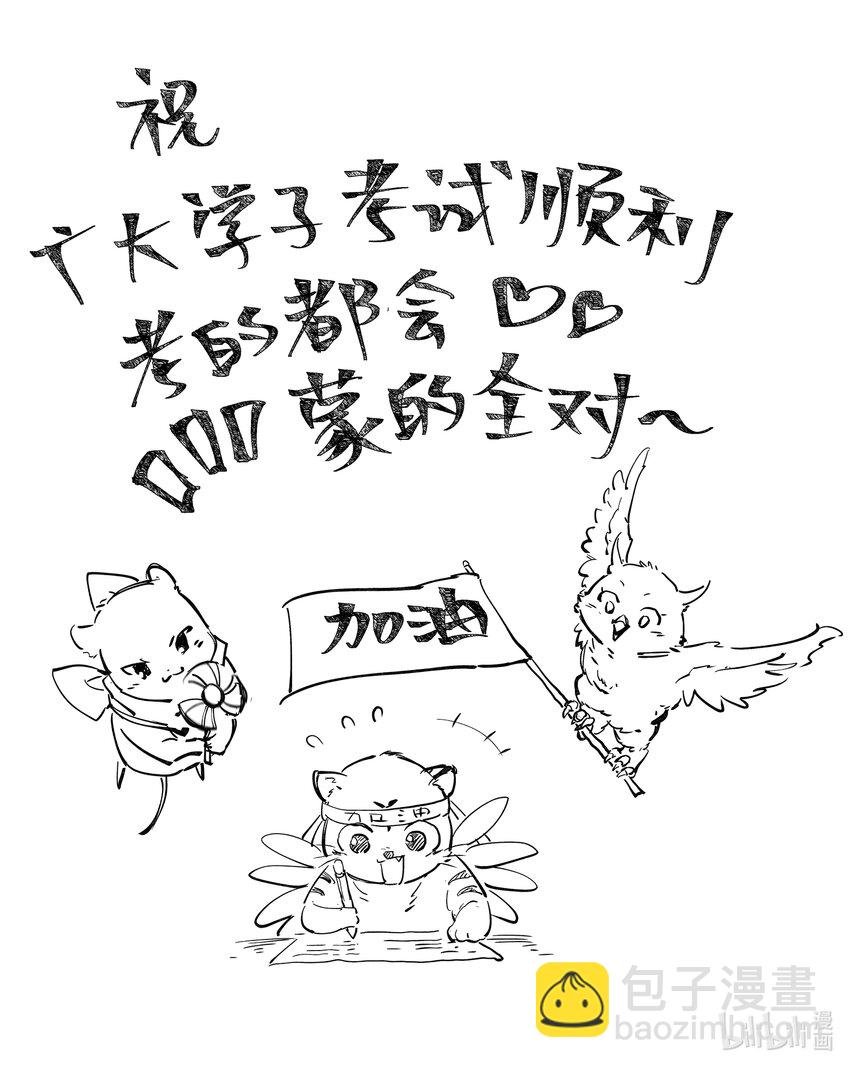 祝
广大学子考试顺利
考的都会
蒙的全对~
加油
加油
包子漫畫
baozimh.com
bilibili
漫画